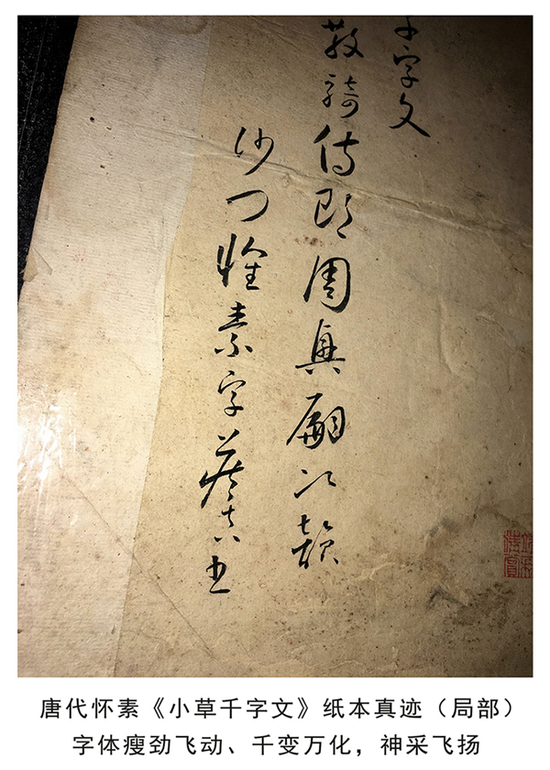 千字文
散騎侍郎周興嗣次韻
沙门懷素字藏真书
唐代怀素《小草千字文》纸本真迹（局部）
字体瘦劲飞动、千变万化，神采飞扬